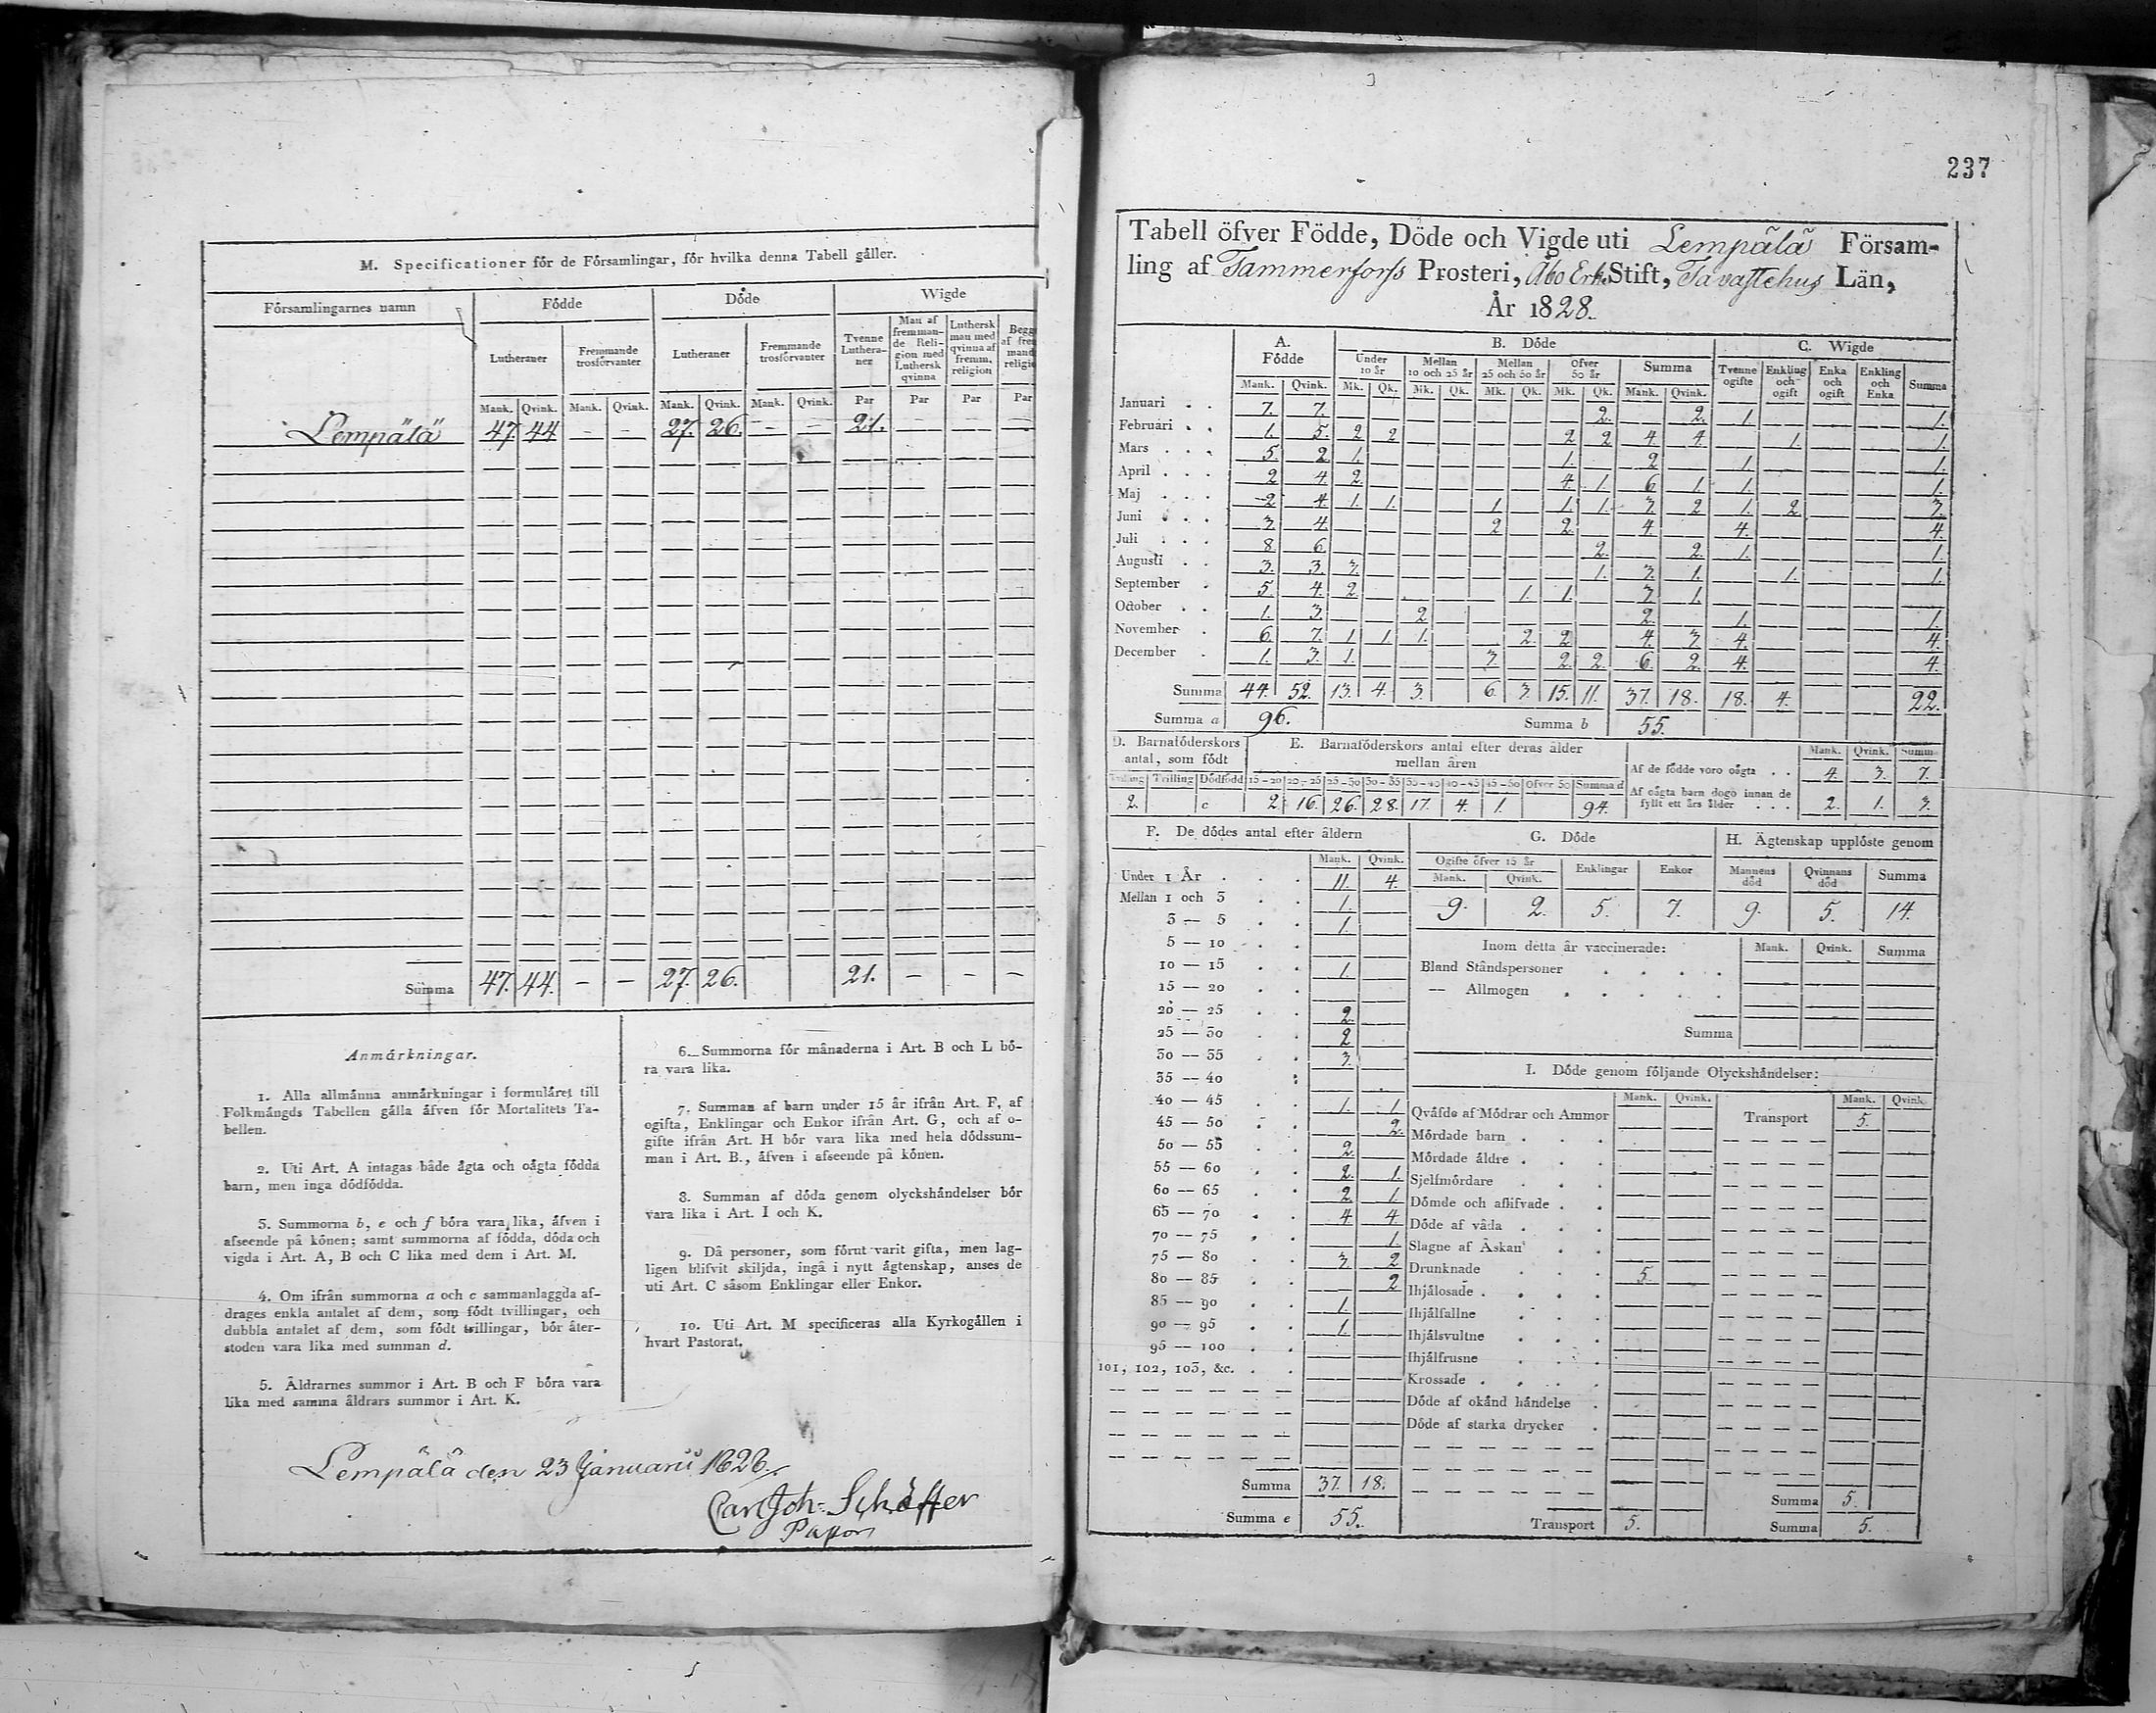 M. Specificationer för de Församlingar, för hvilka denna Tabell gäller.
Församlingarnes namn Födde Döde Wigde
Lutheraner Fremmande trosförvanter Lutheraner Fremmande trosförvanter Tvenne Lutheraner Man af fremmande Religion med Luthersk qvinna Luthersk man med qvinna af fremm. religion
Mank. Qvink. Mank. Qvink. Mank. Qvink. Mank. Qvink. Par Par Par Par
Lempälä 47. 44 – – 27. 26. – – 21. – – –
Summa 47. 44. – – 27. 26. 21. – – –
Anmärkningar.
1. Alla allmänna anmärkningar i formuläret till
Folkmängds Tabellen gälla äfven för Mortalitets Ta-
bellen.
2. Uti Art. A intagas både ägta och oägta födda
barn, men inga dödfödda.
3. Summorna b, e och f böra vara lika, äfven i
afseende på könen; samt summorna af födda, döda och
vigda i Art. A, B och C lika med dem i Art. M.
4. Om ifrån summorna a och c sammanlaggda af-
drages enkla antalet af dem, som födt tvillingar, och
dubbla antalet af dem, som födt trillingar, bör åter-
stoden vara lika med summan d.
5. Åldrarnes summor i Art. B och F böra vara
lika med samma åldrars summor i Art. K.
6. Summorna för månaderna i Art. B och L bö-
ra vara lika.
7. Summan af barn under 15 år ifrån Art. F, af
ogifta, Enklingar och Enkor ifrån Art. G, och af o-
gifte ifrån Art. H bör vara lika med hela dödssum-
man i Art. B., äfven i afseende på könen.
8. Summan af döda genom olyckshändelser bör
vara lika i Art. I och K.
9. Då personer, som förut varit gifta, men lag-
ligen blifvit skiljda, ingå i nytt ägtenskap, anses de
uti Art. C såsom Enklingar eller Enkor.
10. Uti Art. M specificeras alla Kyrkogällen i
hvart Pastorat.
Lempälä den 23 Januarii
Carl Joh: Schöffer
Pastor
237
Tabell öfver Födde, Döde och Vigde uti Lempälä Försam-
ling af Tammerforss Prosteri, Åbo Erke Stift, Tavastehus Län,
År 1828.
A. Födde B. Döde C. Wigde
Under 10 år Mellan 10 och 25 år Mellan 25 och 50 år Öfver 50 år Summa Tvenne ogifte Enkling och ogift Enka och ogift Enkling och Enka Summa
Mank. Qvink. Mk. Qk. Mk. Qk. Mk. Qk. Mk. Qk. Mank. Qvink.
Januari . . 7. 7. 2. 2. 1. 1.
Februari . . 1. 5. 2 2 2 2 4 4. 1. 1.
Mars . . . 5. 2 1. 1. 2 1. 1.
April . . . 2 4 2. 4. 1 6 1. 1. 1.
Maj . . . 2 4. 1. 1. 1. 1. 1. 3 2 1. 2. 3.
Juni . . . 3 4 2 2. 4. 4. 4.
Juli . . . 8. 6. 2. 2. 1. 1.
Augusti . . 3. 3. 3. 1. 3. 1. 1. 1.
September . 5. 4. 2. 1. 1. 3. 1.
October . . 1. 3. 2 2. 1. 1.
November . 6. 7. 1 1. 1. 2. 2. 4. 3 4. 4.
December . 1. 3. 1. 3. 2. 2. 6. 2. 4. 4.
Summa 44. 52. 13. 4. 3. 6. 3. 15. 11. 37. 18. 18. 4. 22.
Summa a 96. Summa b 55.
D. Barnaföderskors antal, som födt
Tvilling Trilling Dödfödd
2. c
E. Barnaföderskors antal efter deras ålder
mellan åren
15–20 20–25 25–30 30–35 35–40 40–45 45–50 Öfver 50 Summa d
2. 16. 26. 28. 17. 4. 1. 94.
Mank. Qvink. Summa
Af de födde voro oägta . . 4. 3. 7.
Af oägta barn dogo innan de
fyllt ett års ålder . . . 2. 1. 3.
F. De dödes antal efter åldern
Mank. Qvink.
Under 1 År . . . 11. 4.
Mellan 1 och 3 . . 1.
3 — 5 . . 1.
5 — 10 . .
10 — 15 . . 1.
15 — 20 . .
20 — 25 . . 2.
25 — 30 . . 2
30 — 35 . . 3.
35 — 40 :
40 — 45 . . 1. 1
45 — 50 . . 2.
50 — 55 . . 2.
55 — 60 . . 2. 1.
60 — 65 . . 2. 1.
65 — 70 . . 4. 4.
70 — 75 . . 1.
75 — 80 . . 3. 2
80 — 85 . . 2
85 — 90 . . 1.
90 — 95 . . 1.
95 — 100 . .
101, 102, 103, &c. . .
Summa 37. 18.
Summa e 55.
G. Döde
Ogifte öfver 15 år Enklingar Enkor
Mank. Qvink.
9. 2. 5. 7.
H. Ägtenskap upplöste genom
Mannens död Qvinnans död Summa
9. 5. 14.
Inom detta år vaccinerade: Mank. Qvink. Summa
Bland Ståndspersoner . . . .
— Allmogen . . . . .
Summa
I. Döde genom följande Olyckshändelser:
Mank. Qvink. Mank. Qvink.
Qväfde af Mödrar och Ammor Transport 5.
Mördade barn . . .
Mördade äldre . . .
Sjelfmördare . . .
Dömde och aflifvade . .
Döde af våda . . .
Slagne af Åskan . .
Drunknade . . . 5.
Ihjälosade . . . .
Ihjälfallne . . .
Ihjälsvultne . . .
Ihjälfrusne . . .
Krossade . . . .
Döde af okänd händelse .
Döde af starka drycker .
Summa 5.
Transport 5. Summa 5.